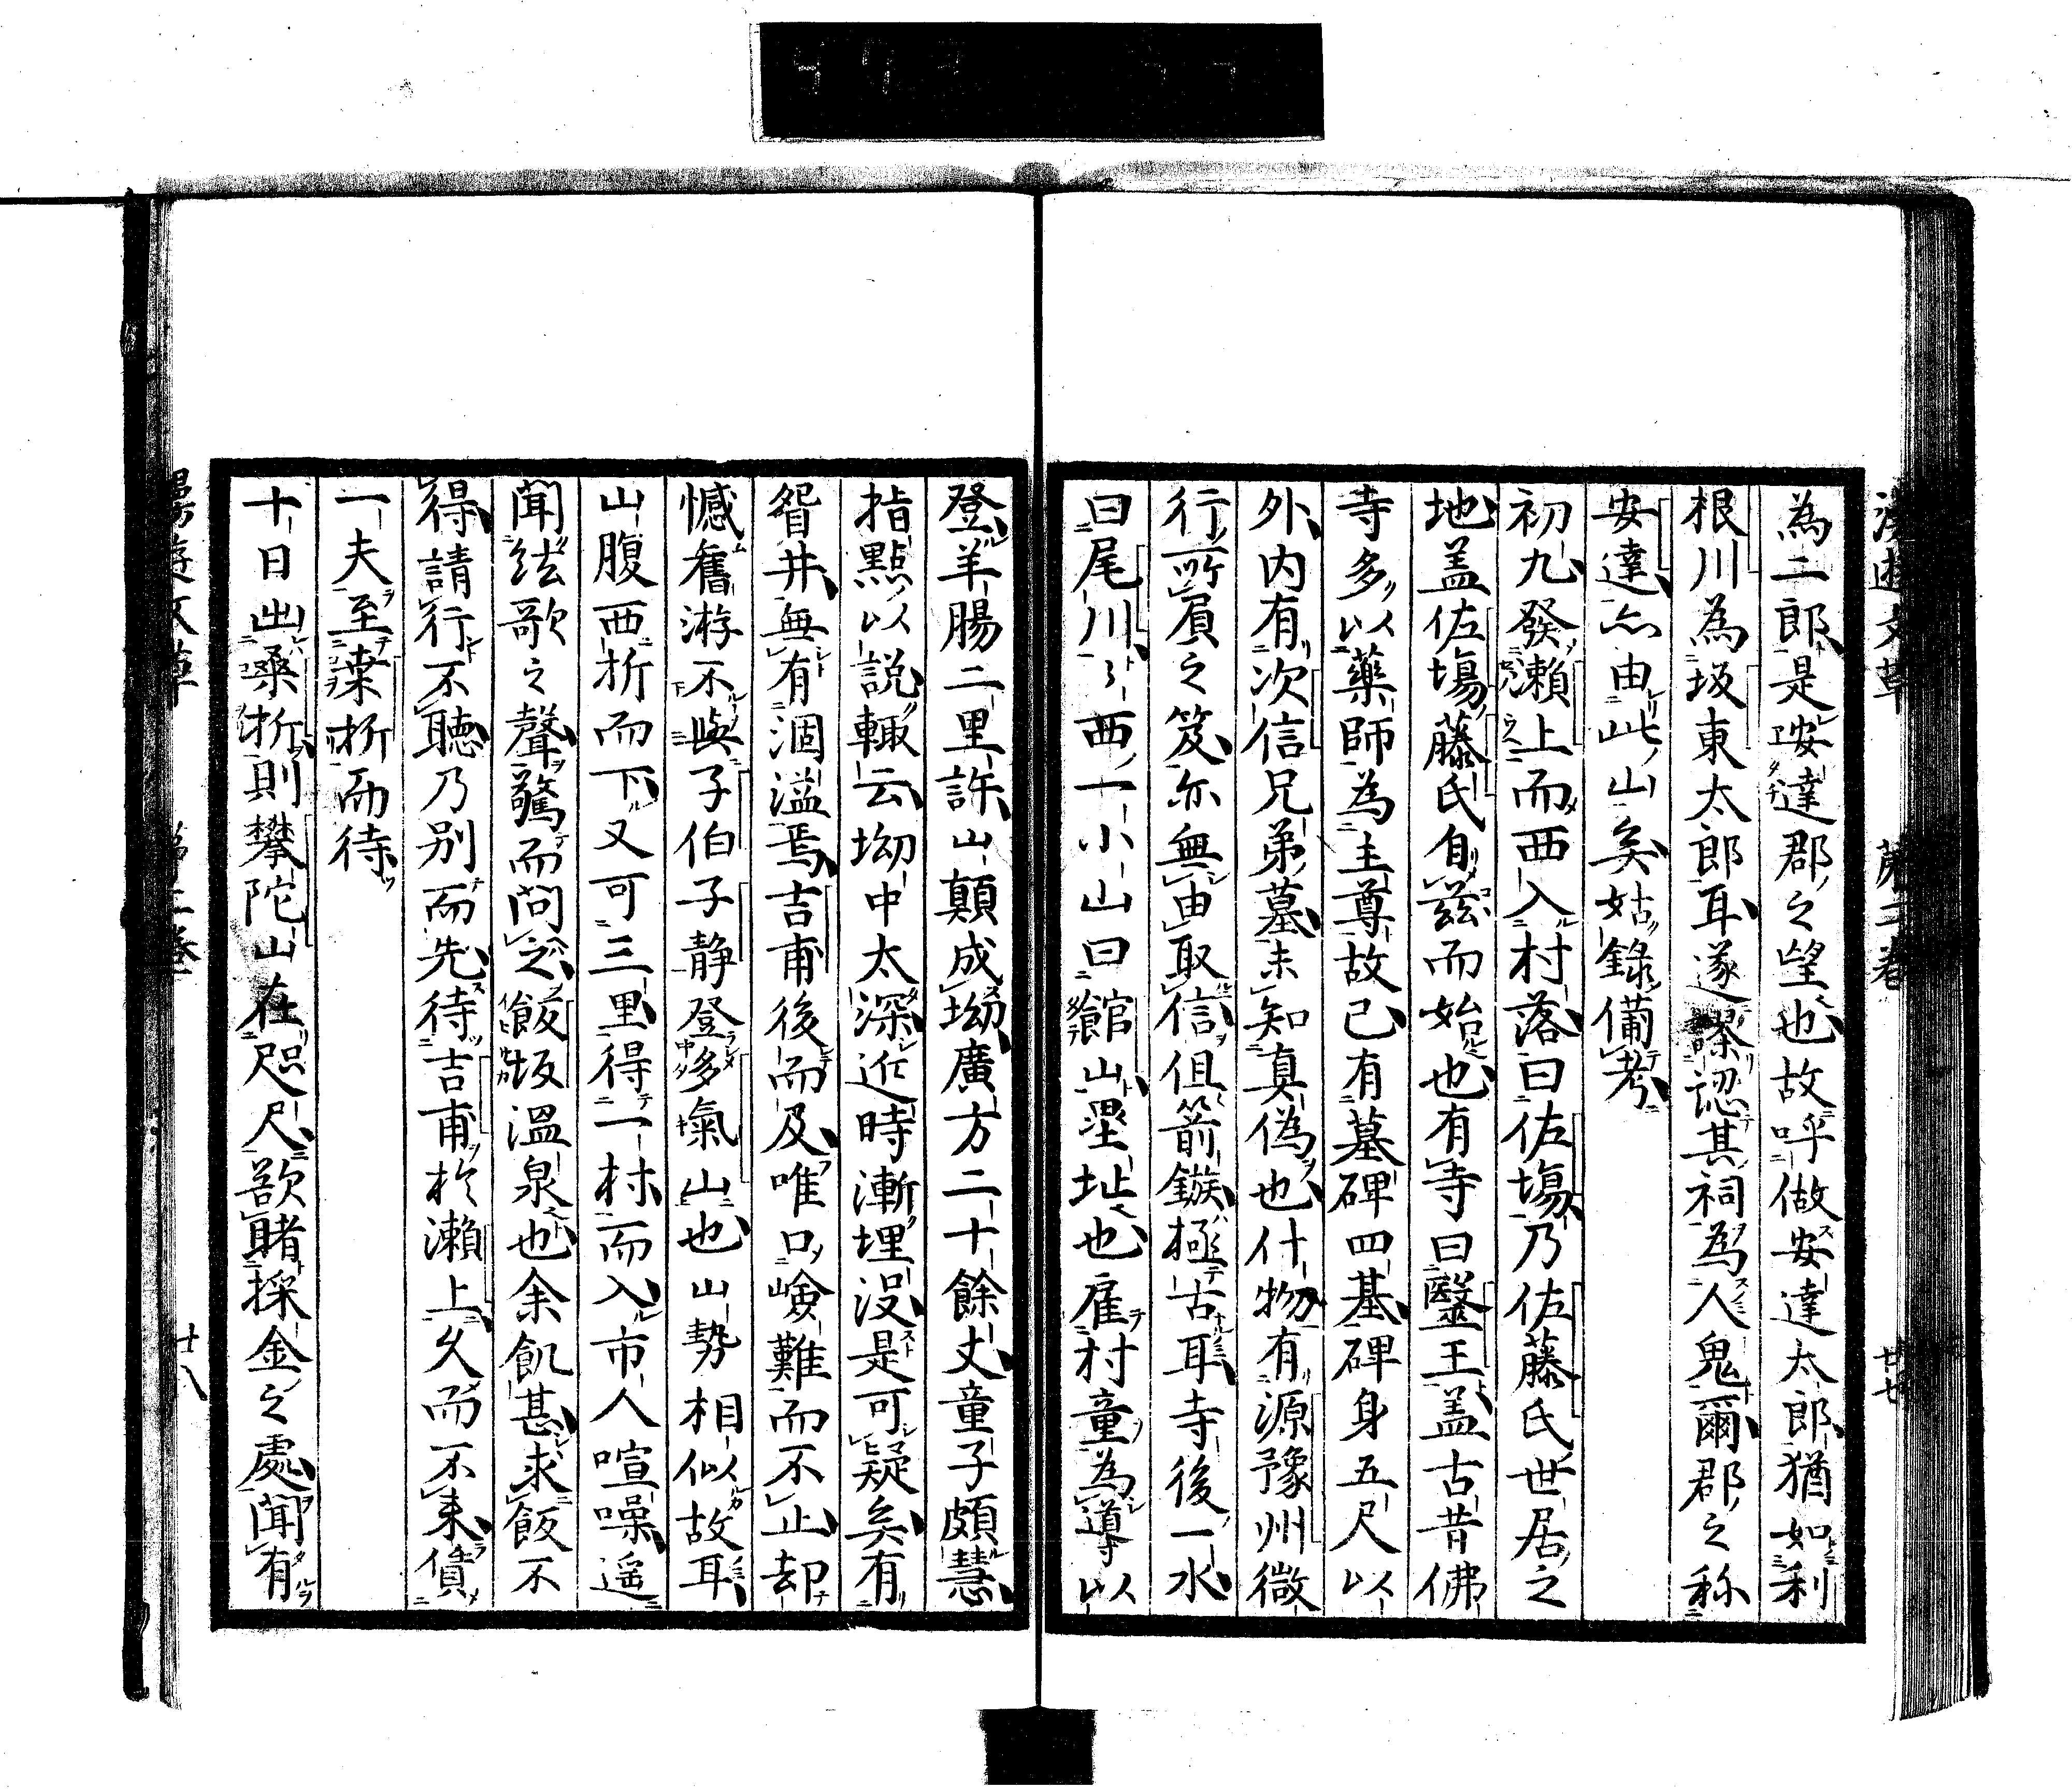 為二郎是安達郡之望也故呼做安達太郎猶如利
根川為坂東太郎耳遂謬認其祠為人鬼爾郡之称
安達亦由此山矣姑錄備考
初九發瀨上而西入村落曰佐塲乃佐藤氏世居之
地盖佐塲藤氏自茲而始也有寺曰毉王盖古昔佛
寺多以藥師為主尊故已有墓碑四基碑身五尺以
外内有次信兄弟墓未知真偽也什物有源豫州微
行所負之笈亦無由取信但箭鏃極古耳寺後一水
曰尾川々西一小山曰館山壘址也雇村童為導以
登羊腸二里許山顛成坳廣方二十餘丈童子頗慧
指點以說輙云坳中太深近時漸埋没是可疑矣有
眢井無有涸溢焉吉甫後而及唯口嶮難而不止却
憾舊游不與子伯子静登多氣山也山勢相似故耳
山腹西折而下又可三里得一村而入市人喧噪遥
聞絃歌之聲驚而問之飯坂温泉也余飢甚求飯不
得請行不聽乃別而先待吉甫於瀨上久而不来債
一夫至桒折而待
十日出桑折則攀陀山在咫尺欲睹採金之處聞有
漫遊文草 第三卷 廿七